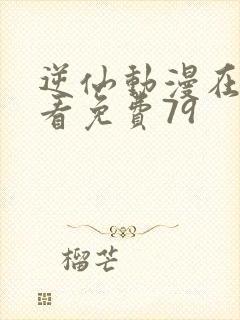 逆仙動漫在
看免費79
榴芒